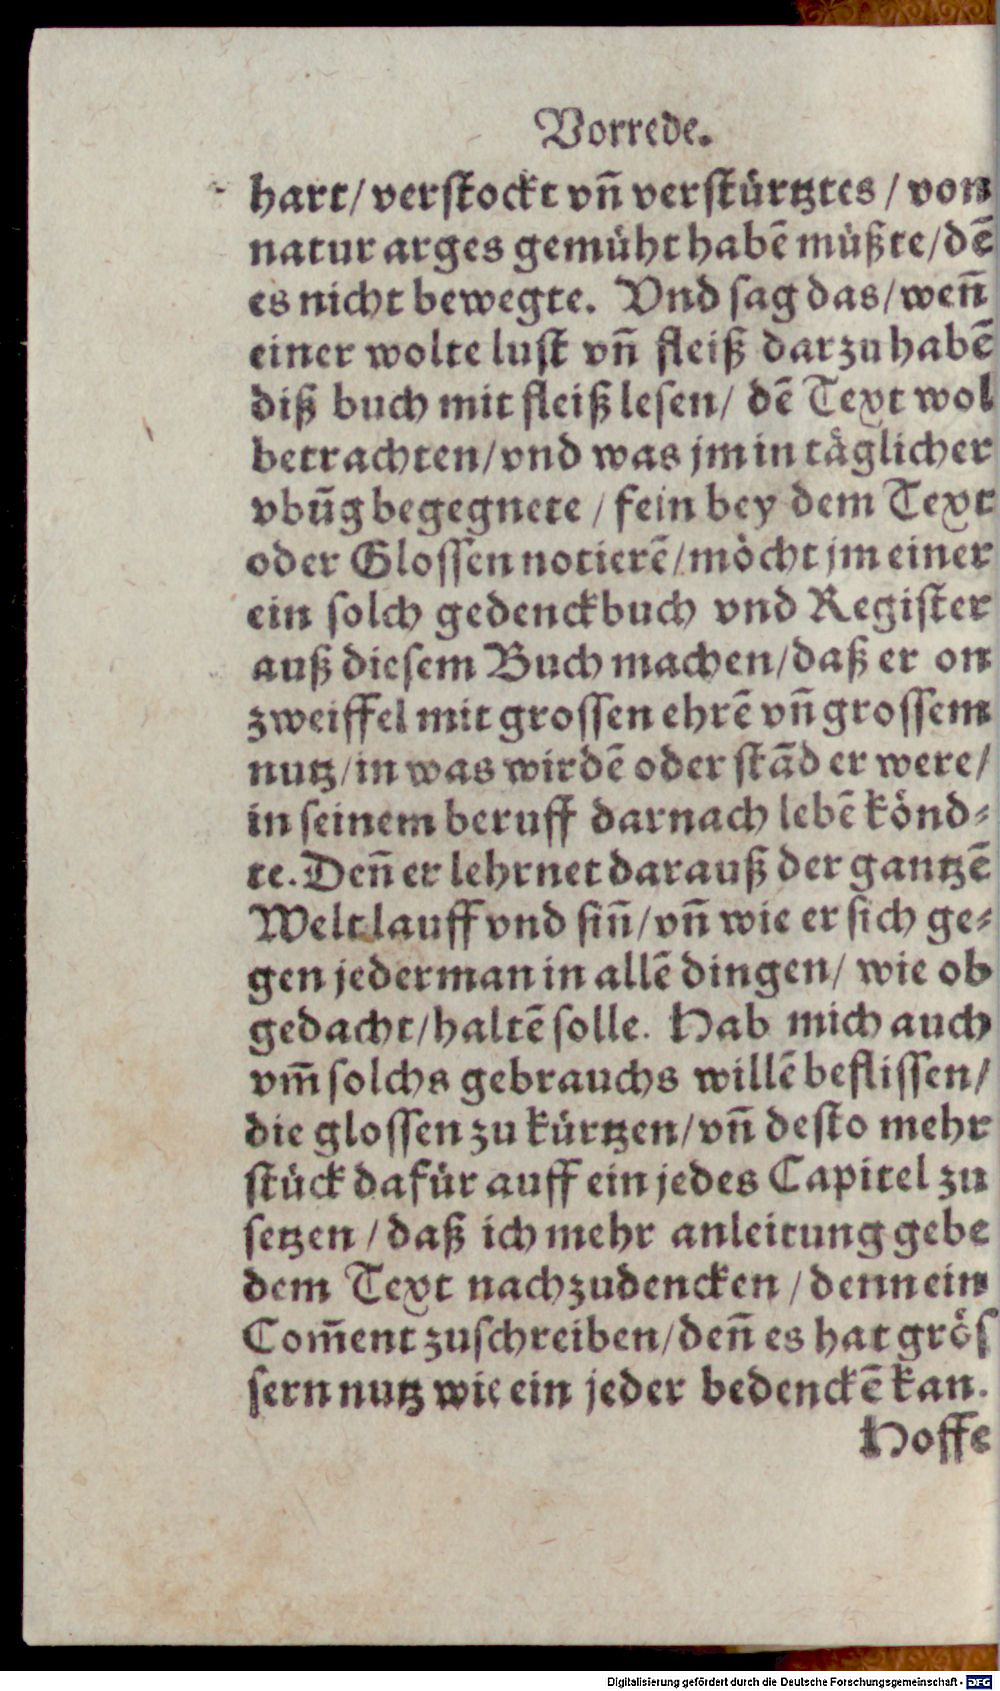 Vorrede.
hart/ verstockt vñ verstürtztes / von
natur arges gemüht habē müßte/ dē
es nicht bewegte. Vnd sag das/ weñ
einer wolte lust vñ fleiß darzu habē
diß buch mit fleiß lesen/ dē Text wol
betrachten/ vnd was jm in täglicher
vbūg begegnete / fein bey dem Text
oder Glossen notierē/ möcht jm einer
ein solch gedenckbuch vnd Register
auß diesem Buch machen/ daß er on
zweiffel mit grossen ehrē vñ grossem
nutz/ in was wirdē oder stād er were/
in seinem beruff darnach lebē könd-
te. Deñ er lehrnet darauß der gantzē
Welt lauff vnd siñ/ vñ wie er sich ge-
gen jederman in allē dingen/ wie ob
gedacht/ haltē solle. Hab mich auch
vm̄ solchs gebrauchs willē beflissen/
die glossen zu kürtzen/ vñ desto mehr
stück dafür auff ein jedes Capitel zu
setzen / daß ich mehr anleitung gebe
dem Text nachzudencken / denn ein
Com̄ent zuschreiben/ deñ es hat grös
sern nutz wie ein jeder bedenckē kan.
Hoffe
Digitalisierung gefördert durch die Deutsche Forschungsgemeinschaft - DFG